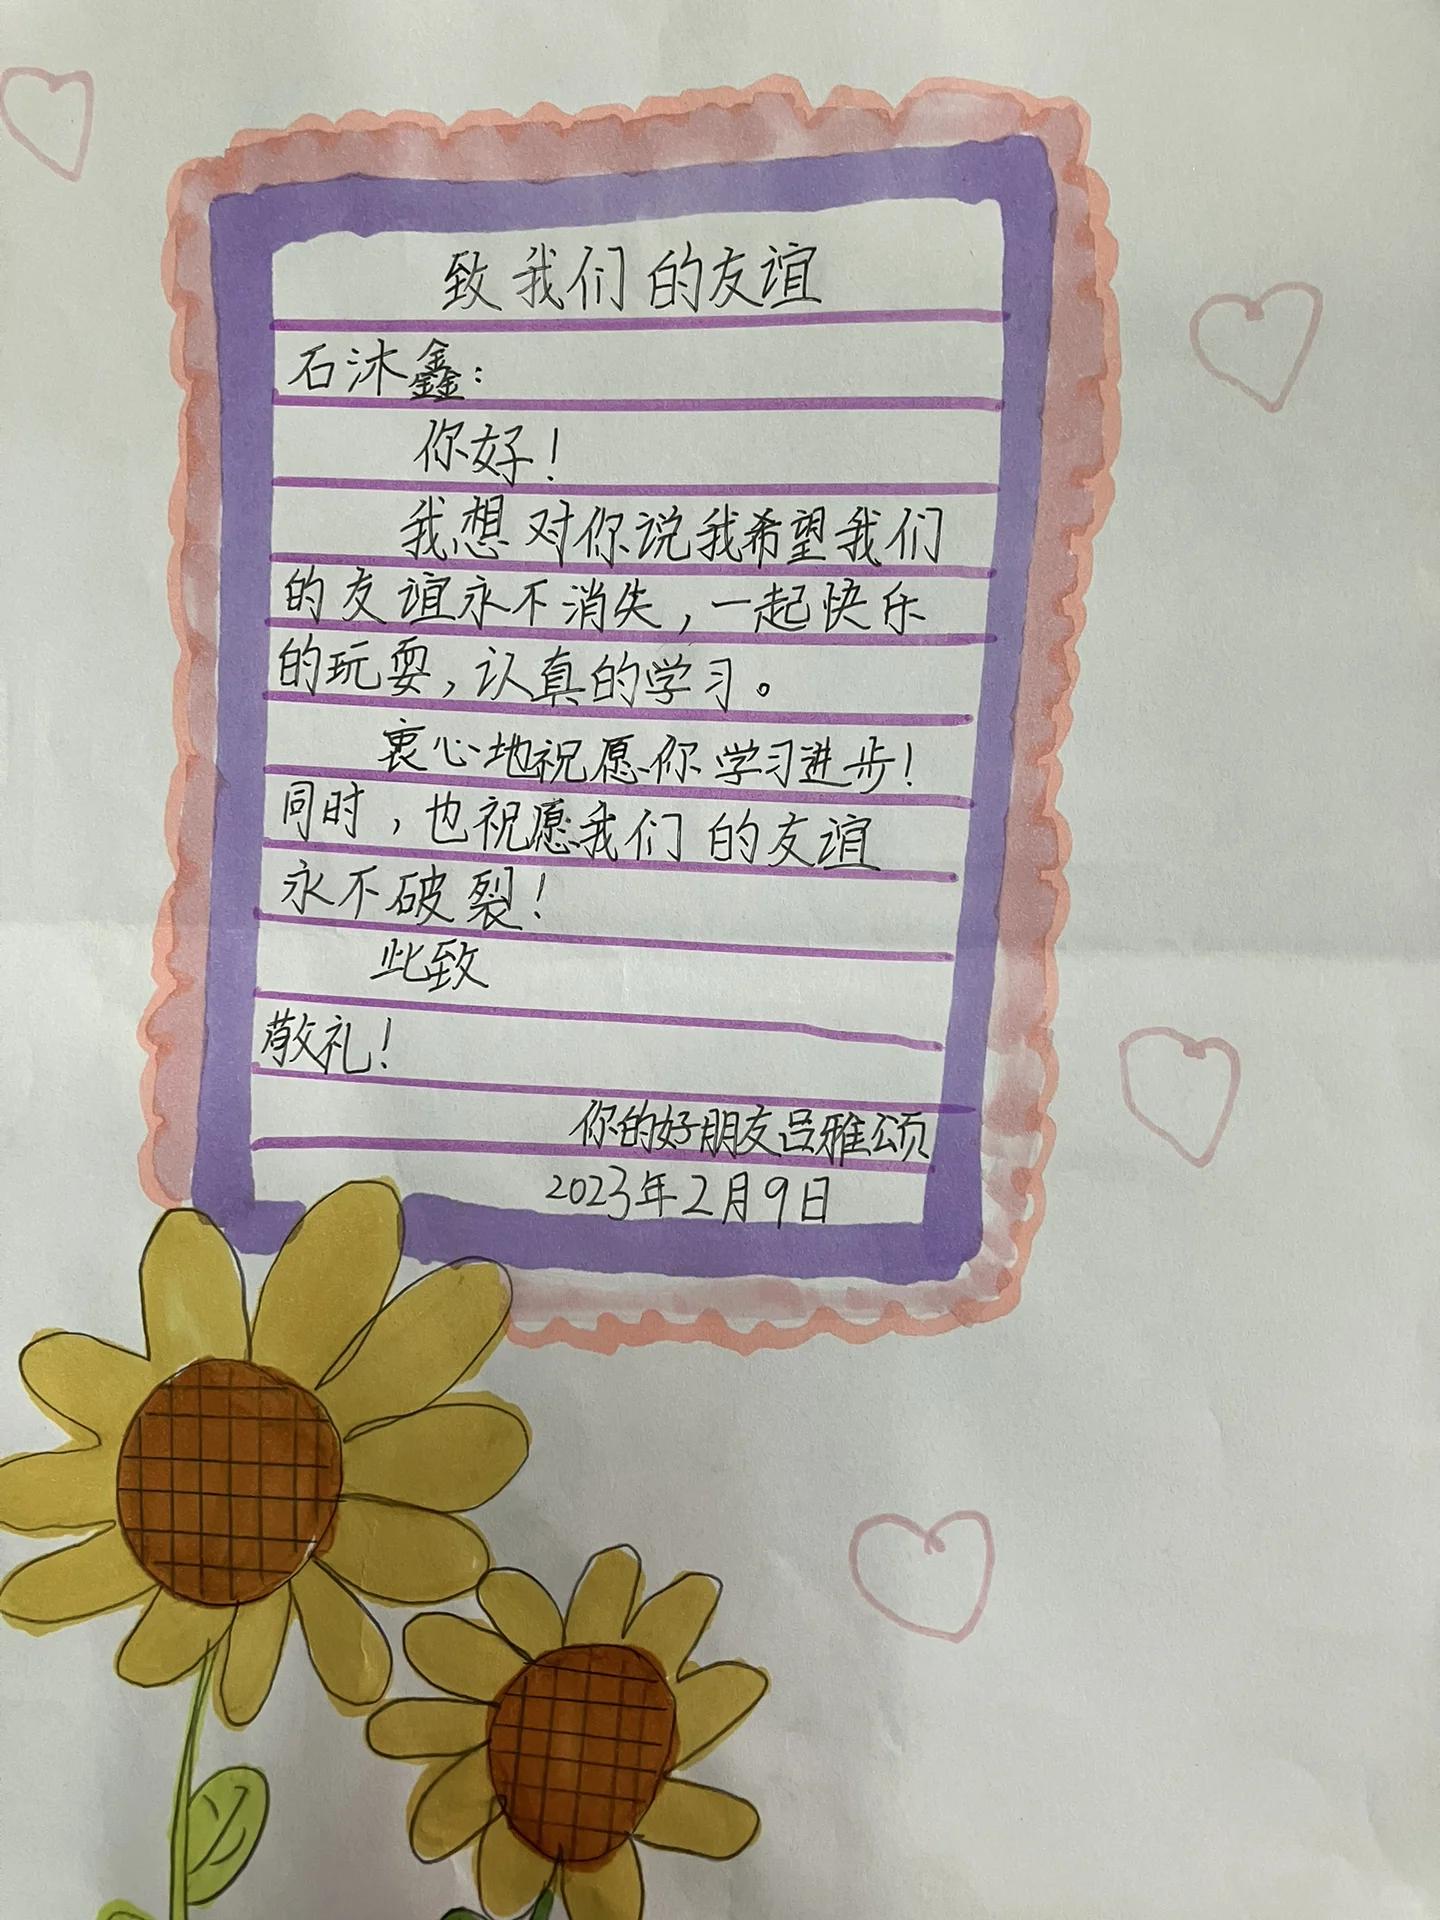 致我们的友谊
石沐鑫：
你好！
我想对你说我希望我们
的友谊永不消失，一起快乐
的玩耍，认真的学习。
衷心地祝愿你学习进步！
同时，也祝愿我们的友谊
永不破裂！
此致
敬礼！
你的好朋友吕雅颂
2023年2月9日